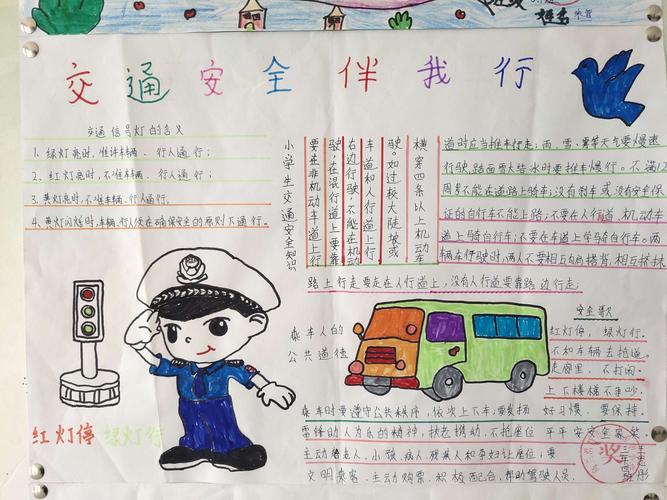 姓名
交通安全伴我行
交通信号灯的含义
1. 绿灯亮时，准许车辆、行人通行；
2. 红灯亮时，不准车辆、行人通行；
3. 黄灯亮时，不准车辆、行人通行，
4. 黄灯闪烁时，车辆、行人须在确保安全的原则下通行。
小学生交通安全知识
要在非机动车道上行
驶，在混行道上要靠
右边行驶，不能在机动
车道和人行道上行
驶。如过较大陡坡或
横穿四条以上机动车
道时应当推车行走，雨、雪、雾等天气要慢速
行驶，路面雪大结冰时要推车慢行。不满12
周岁不能在道路上骑车；没有刹车或没有安全保
证的自行车不能上路；不要在人行道、机动车
道上骑自行车；不要在车道上学骑自行车。两
辆车同驶时，两人不要相互并肩搭背，相互搭扶
路上行走要走在人行道上，没有人行道要靠路边行走，
乘车人的
公共道德
安全歌
红灯停，绿灯行。
不和车辆去抢道。
走廊里，不打闹。
上下楼梯不争吵。
好习惯，要保持。
平平安安全家笑
乘车时要遵守公共秩序，依次上下车；要发扬
雷锋助人为乐的精神，扶老携幼，不抢座位
主动给老人、小孩、病人、残疾人和孕妇让座位；要
文明乘客，主动购票、积极配合，帮助驾驶人员。
红灯停 绿灯行
奖